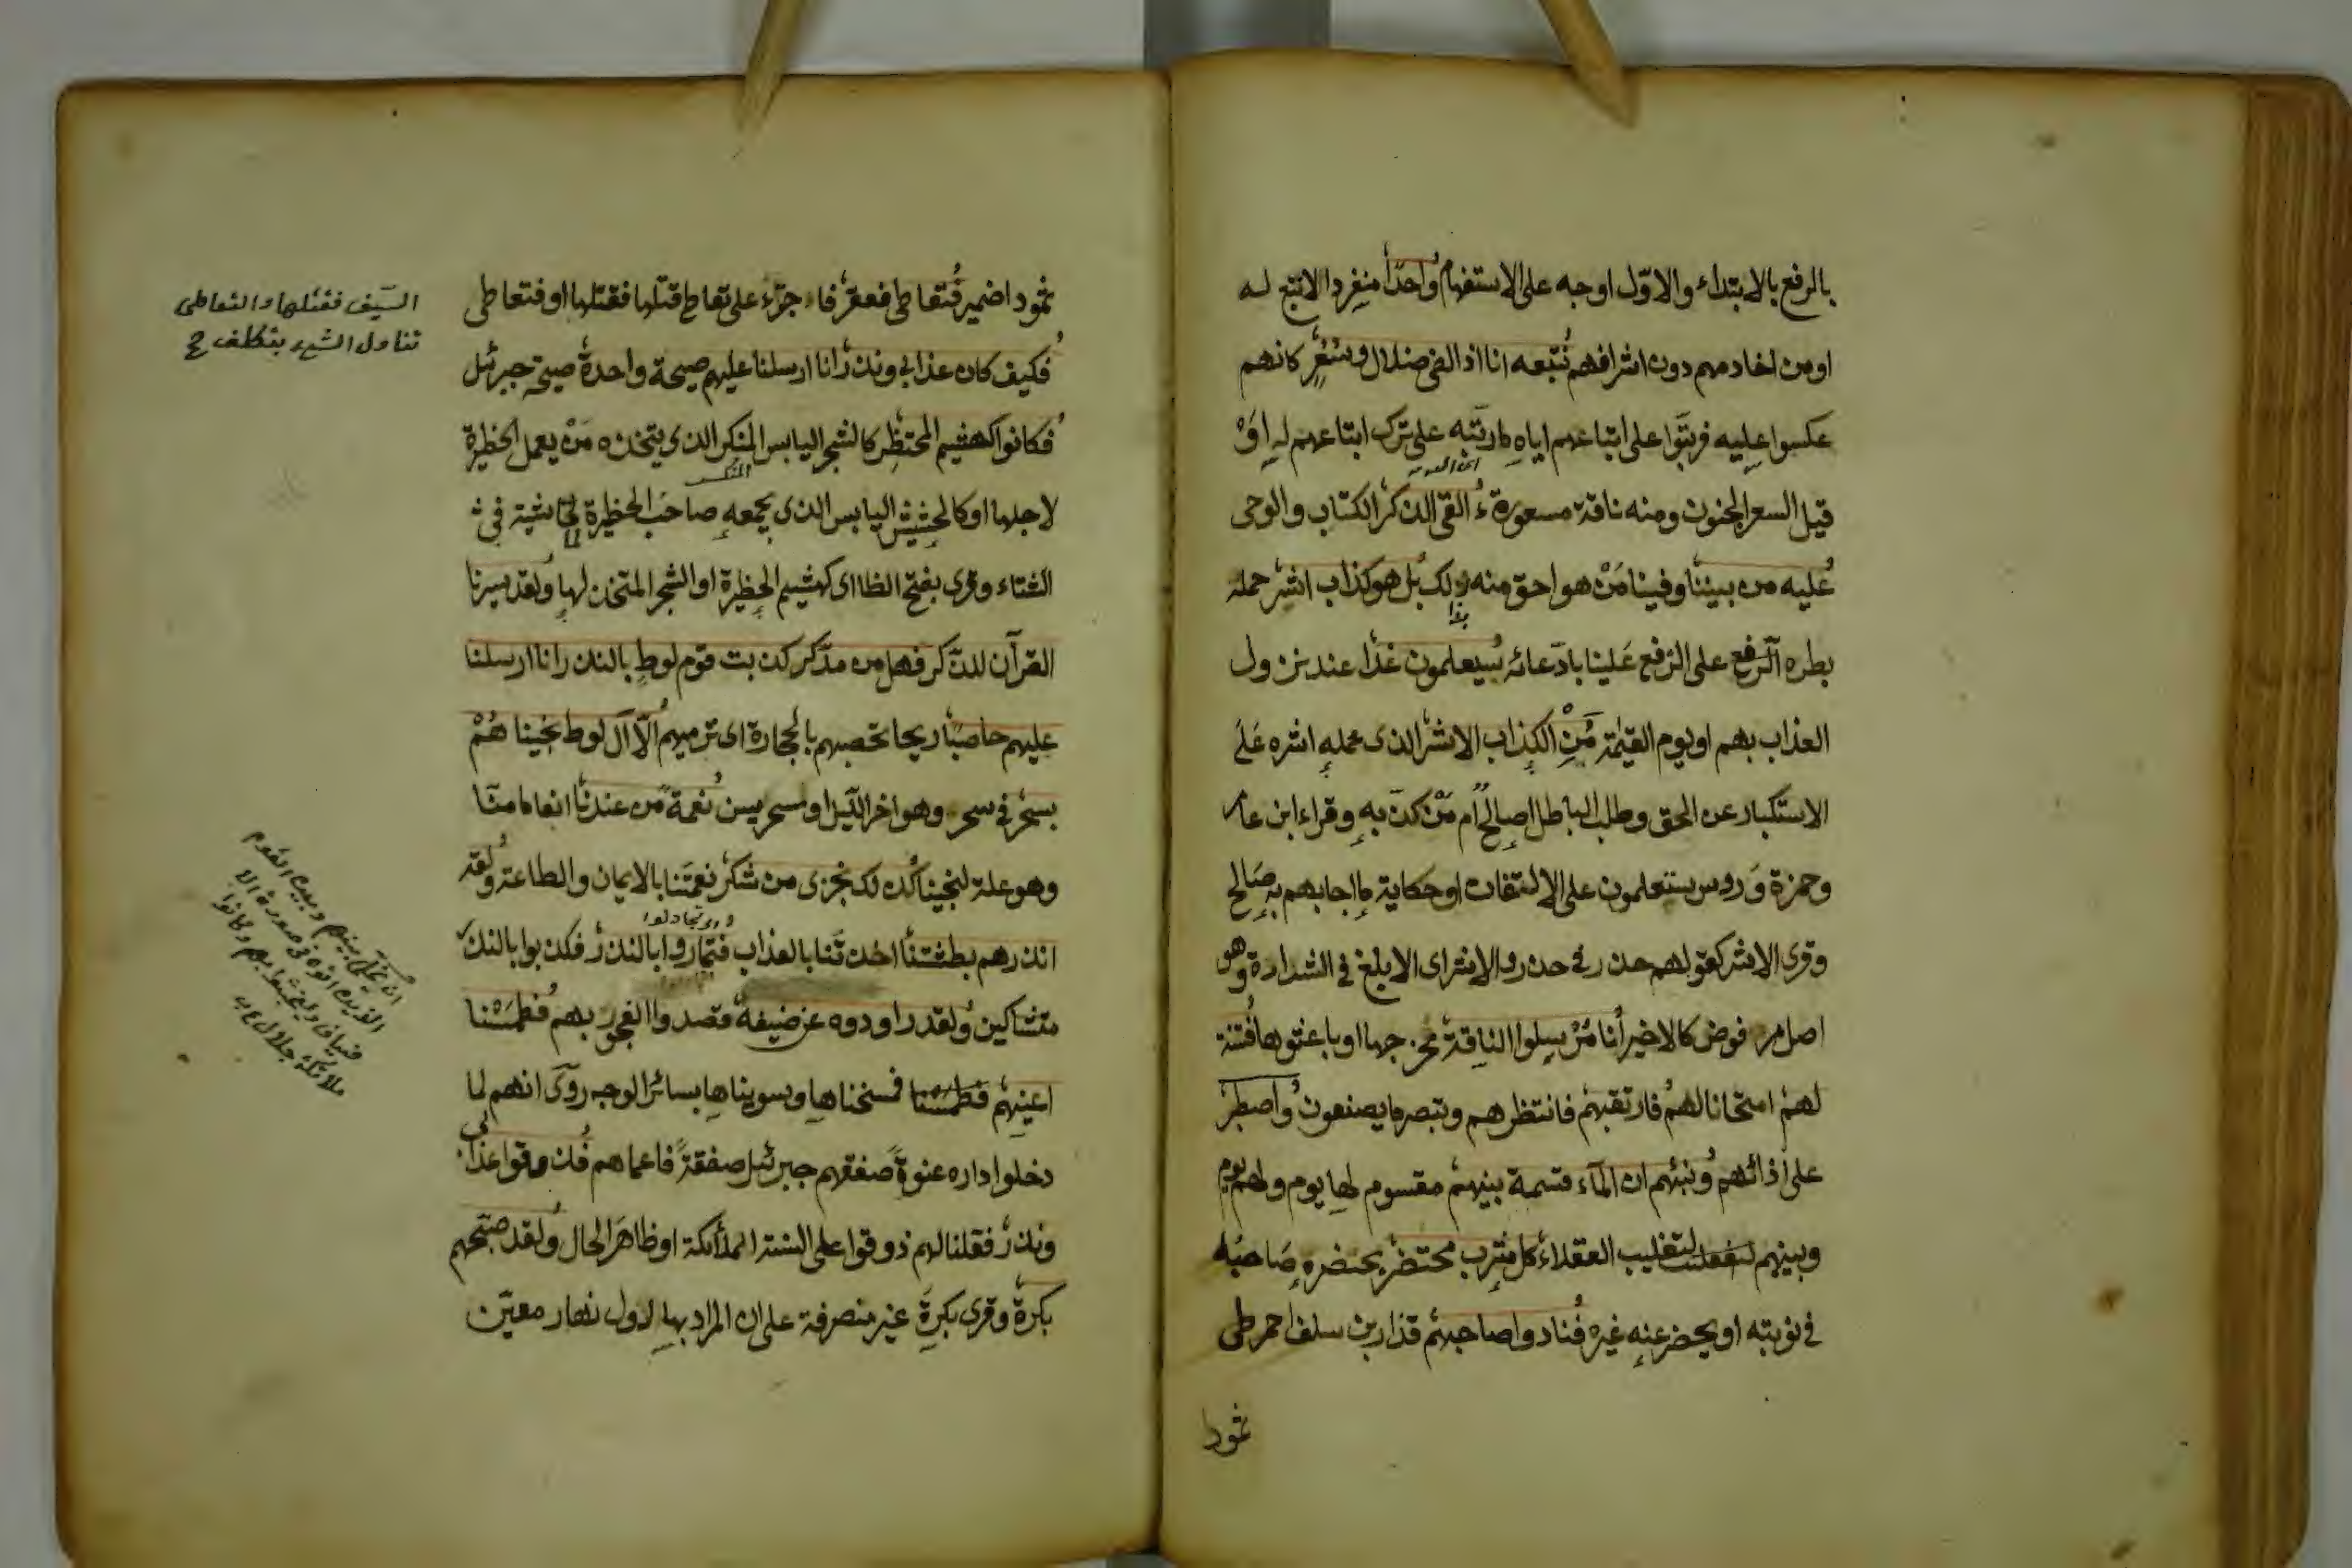 بالرفع بالابتداء والاوّل اوجه على الاستفهام واحدًا منفردا لاتبع له
او من احادهم دون اشرافهم نتبعه انا اذا لفى ضلال وسُعُرٍ كانهم
عكسوا عليه فرتبوا على اتباعهم اياه ما رتبه على ترك اتباعهم له او
قيل السعر الجنون ومنه ناقة مسعورة ءالقى الذكر الكتاب والوحى
عليه من بيننا وفينا مَنْ هو احق منه بذلك بل هو كذاب اشر حمله
بطره الترفع على الترفع علينا بادّعائه سيعلمون غدًا عند نزول
العذاب بهم او يوم القيٰمة مَنِ الكذاب الاشر الذى حمله اشره على
الاستكبار عن الحق وطلب الباطل اصالح ام مَنْ كذّبه وقراء ابن عامر
وحمزة ورويس ستعلمون على الالتفات او حكاية ما اجابهم به صالح
وقرئ الاشر كقولهم حذر فى حذر والاشر اى الابلغ فى الشرارة وهو
اصل مرفوض كالاخير انا مُرْسِلوا الناقة مخرجوها او باعثوها فتنة
لهم امتحانا لهم فارتقبهم فانتظرهم وتبصر ما يصنعون واصطبر
على اذائهم ونبّئهم ان المآء قسمة بينهم مقسوم لها يوم ولهم يوم
وبينهم لتغليب العقلاء كل شرب محتضر يحضره صاحبه
فى نوبته او يحضر عنه غيره فنادوا صاحبهم قذار بن سلف احمر طى
ثمود
ثمود اضمير فتعاطى فعقر فا جزء على تعاطى قتلها فقتلها او فتعاطى
فكيف كان عذابى ونذر انا ارسلنا عليهم صيحة واحدة صيحة جبرئيل
فكانوا كهشيم المحتظِر كالشجر اليابس المنكر الذى يتخذه مَنْ يعمل الحظيرة
لاجلها او كالحشيش اليابس الذى يجمعه صاحب الحظيرة لماشية فى
الشتاء وقرئ بفتح الظا اى كهشيم الحظيرة او الشجر المتخذ لها ولقد يسرنا
القرآن للذكر فهل من مدّكر كذبت قوم لوطٍ بالنذر انا ارسلنا
عليهم حاصبًا ريحا تحصبهم بالحجارة اى ترميهم الّا آل لوط نجيناهُمْ
بسحر فى سحر وهو اخر الليل او مسحرين نعمةً من عندنا انعاما منّا
وهو علة لنجينا كذلك نجزى من شكر نعمتنا بالايمان والطاعة ولقد
انذرهم بطشتنا اخذتنا بالعذاب فتماروا بالنذر فكذبوا بالنذر
متشاكين ولقد راودوه عن ضيفه قصدوا الفجور بهم فطمسنا
اعينهم فطمسنا فمسخناها وسويناها بسائر الوجه روى انهم لما
دخلوا داره عنوةً صفقهم جبرئيل صفقةً فاعماهم فذوقوا عذابى
ونذر فقلنا لهم ذوقوا على السنة الملائكة او ظاهر الحال ولقد صبّحهم
بكرة وقرئ بكرةَ غير منصرفة على ان المراد بها اول نهار معيّن
السّيف فقتلها والتعاطى
تناول الشئ بتكلف ح
ان يخلى بينهم وبين القوم
الذين اتوه فى صورة الا
ضياف ليخبثوا بهم وكانوا
ملائكة جلالين